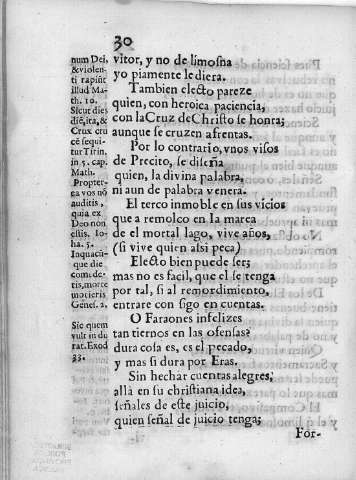 30
num Dei,
& violen-
ti rapiũt
illud Ma-
th. 10.
Sicut dies
diẽ, ita, &
Crux cru
cẽ sequi-
tur Tirin,
in 5. cap.
Math.
Propter-
ea vos nõ
auditis,
quia ex
Deo non
estis. Io-
ha. 5.
Inquacũ-
que die
comede-
tis, morte
morieris
Genes. 2.
Sic quem
vult in du
rat. Exod
33.
vitor, y no de limosna
yo piamente le diera.
Tambien electo pareze
quien, con heroica paciencia,
con la Cruz de Christo se honra;
aunque se cruzen afrentas.
Por lo contrario, vnos visos
de Precito, se diseña
quien, la divina palabra,
ni aun de palabra venera.
El terco inmoble en sus vicios
que a remolco en la marea
de el mortal lago, vive años,
(si vive quien assi peca)
Electo bien puede ser;
mas no es facil, que el se tenga
por tal, si al remordimiento,
entrare con sigo en cuentas.
O Faraones infelizes
tan tiernos en las ofensas?
dura cosa es, es el pecado,
y mas si dura por Eras.
Sin hechar cuentas alegres;
allà en su christiana idea,
señales de este juicio,
quien señal de juicio tenga;
For-